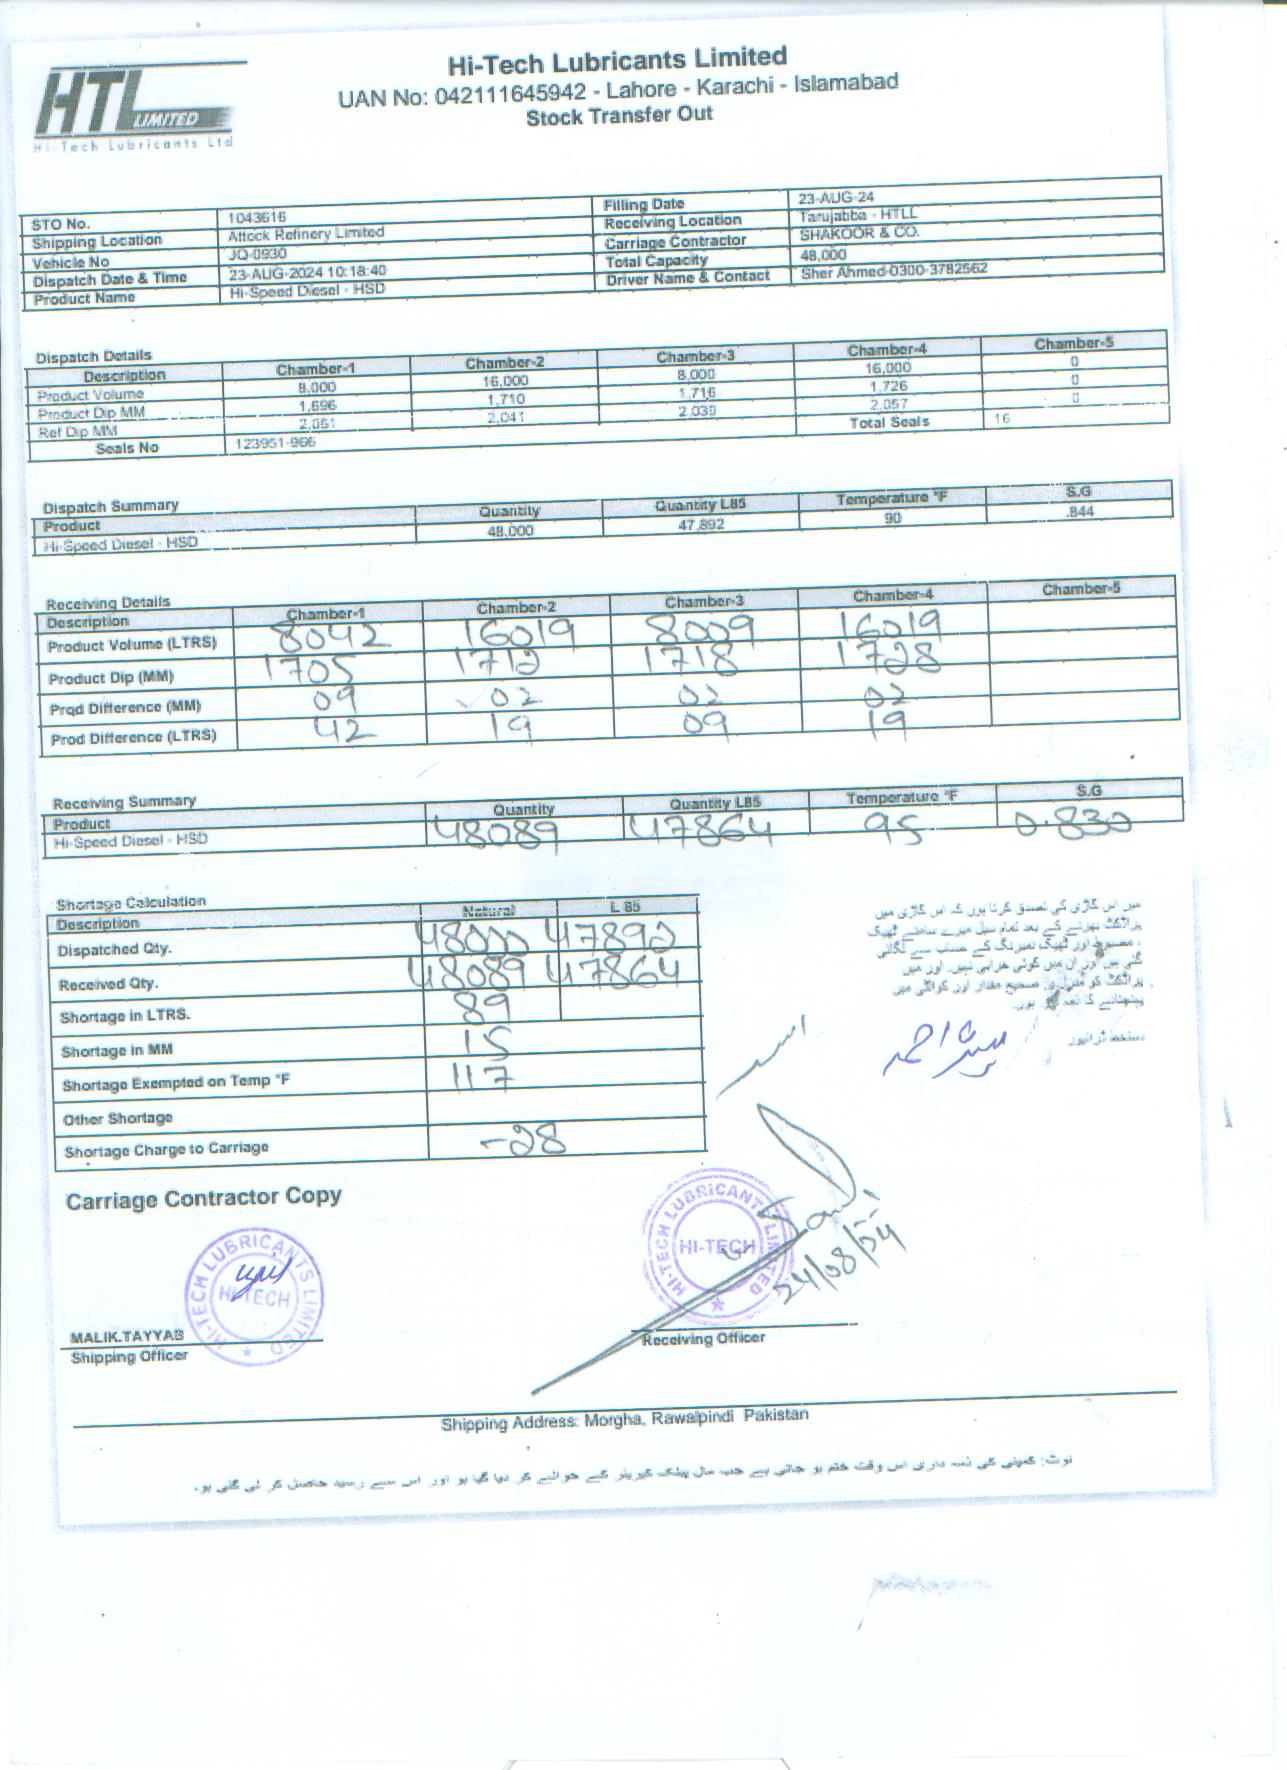 HTL
LIMITED
Hi-Tech Lubricants Ltd
Hi-Tech Lubricants Limited
UAN No: 042111645942 - Lahore - Karachi - Islamabad
Stock Transfer Out
STO No. 1043616 Filling Date 23-AUG-24
Shipping Location Attock Refinery Limited Receiving Location Tarujabba - HTLL
Vehicle No JQ-0930 Carriage Contractor SHAKOOR & CO.
Dispatch Date & Time 23-AUG-2024 10:18:40 Total Capacity 48,000
Product Name Hi-Speed Diesel - HSD Driver Name & Contact Sher Ahmed-0300-3782562
Dispatch Details
Description Chamber-1 Chamber-2 Chamber-3 Chamber-4 Chamber-5
Product Volume 8,000 16,000 8,000 16,000 0
Product Dip MM 1,696 1,710 1,716 1,726 0
Ref Dip MM 2,051 2,041 2,039 2,057 0
Seals No 123951-966 Total Seals 16
Dispatch Summary
Product Quantity Quantity L85 Temperature °F S.G
Hi-Speed Diesel - HSD 48,000 47,892 90 .844
Receiving Details
Description Chamber-1 Chamber-2 Chamber-3 Chamber-4 Chamber-5
Product Volume (LTRS) 8042 16019 8009 16019
Product Dip (MM) 1705 1712 1718 1728
Prod Difference (MM) 09 02 02 02
Prod Difference (LTRS) 42 19 09 19
Receiving Summary
Product Quantity Quantity L85 Temperature °F S.G
Hi-Speed Diesel - HSD 48089 47864 95 0.830
Shortage Calculation
Description Natural L 85
Dispatched Qty. 48000 47892
Received Qty. 48089 47864
Shortage in LTRS. 89
Shortage in MM 15
Shortage Exempted on Temp °F 117
Other Shortage
Shortage Charge to Carriage -28
میں اس گاڑی کی تصدیق کرتا ہوں کہ اس گاڑی میں
پراڈکٹ بھرنے کے بعد تمام سیل میرے سامنے ٹھیک
، مضبوط اور ٹھیک نمبرنگ کے حساب سے لگائی
گئی ہیں اور ان میں کوئی خرابی نہیں۔ اور میں
پراڈکٹ کو منزل پر صحیح مقدار اور کوالٹی میں
پہنچانے کا ذمہ دار ہوں۔
دستخط ڈرائیور
شیر احمد
Carriage Contractor Copy
HI-TECH LUBRICANTS LIMITED
HI-TECH
HI-TECH LUBRICANTS LIMITED
HI-TECH
24/08/24
MALIK.TAYYAB
Shipping Officer
Receiving Officer
Shipping Address: Morgha, Rawalpindi Pakistan
نوٹ: کمپنی کی ذمہ داری اس وقت ختم ہو جاتی ہے جب مال پبلک کیریئر کے حوالے کر دیا گیا ہو اور اس سے رسید حاصل کر لی گئی ہو۔